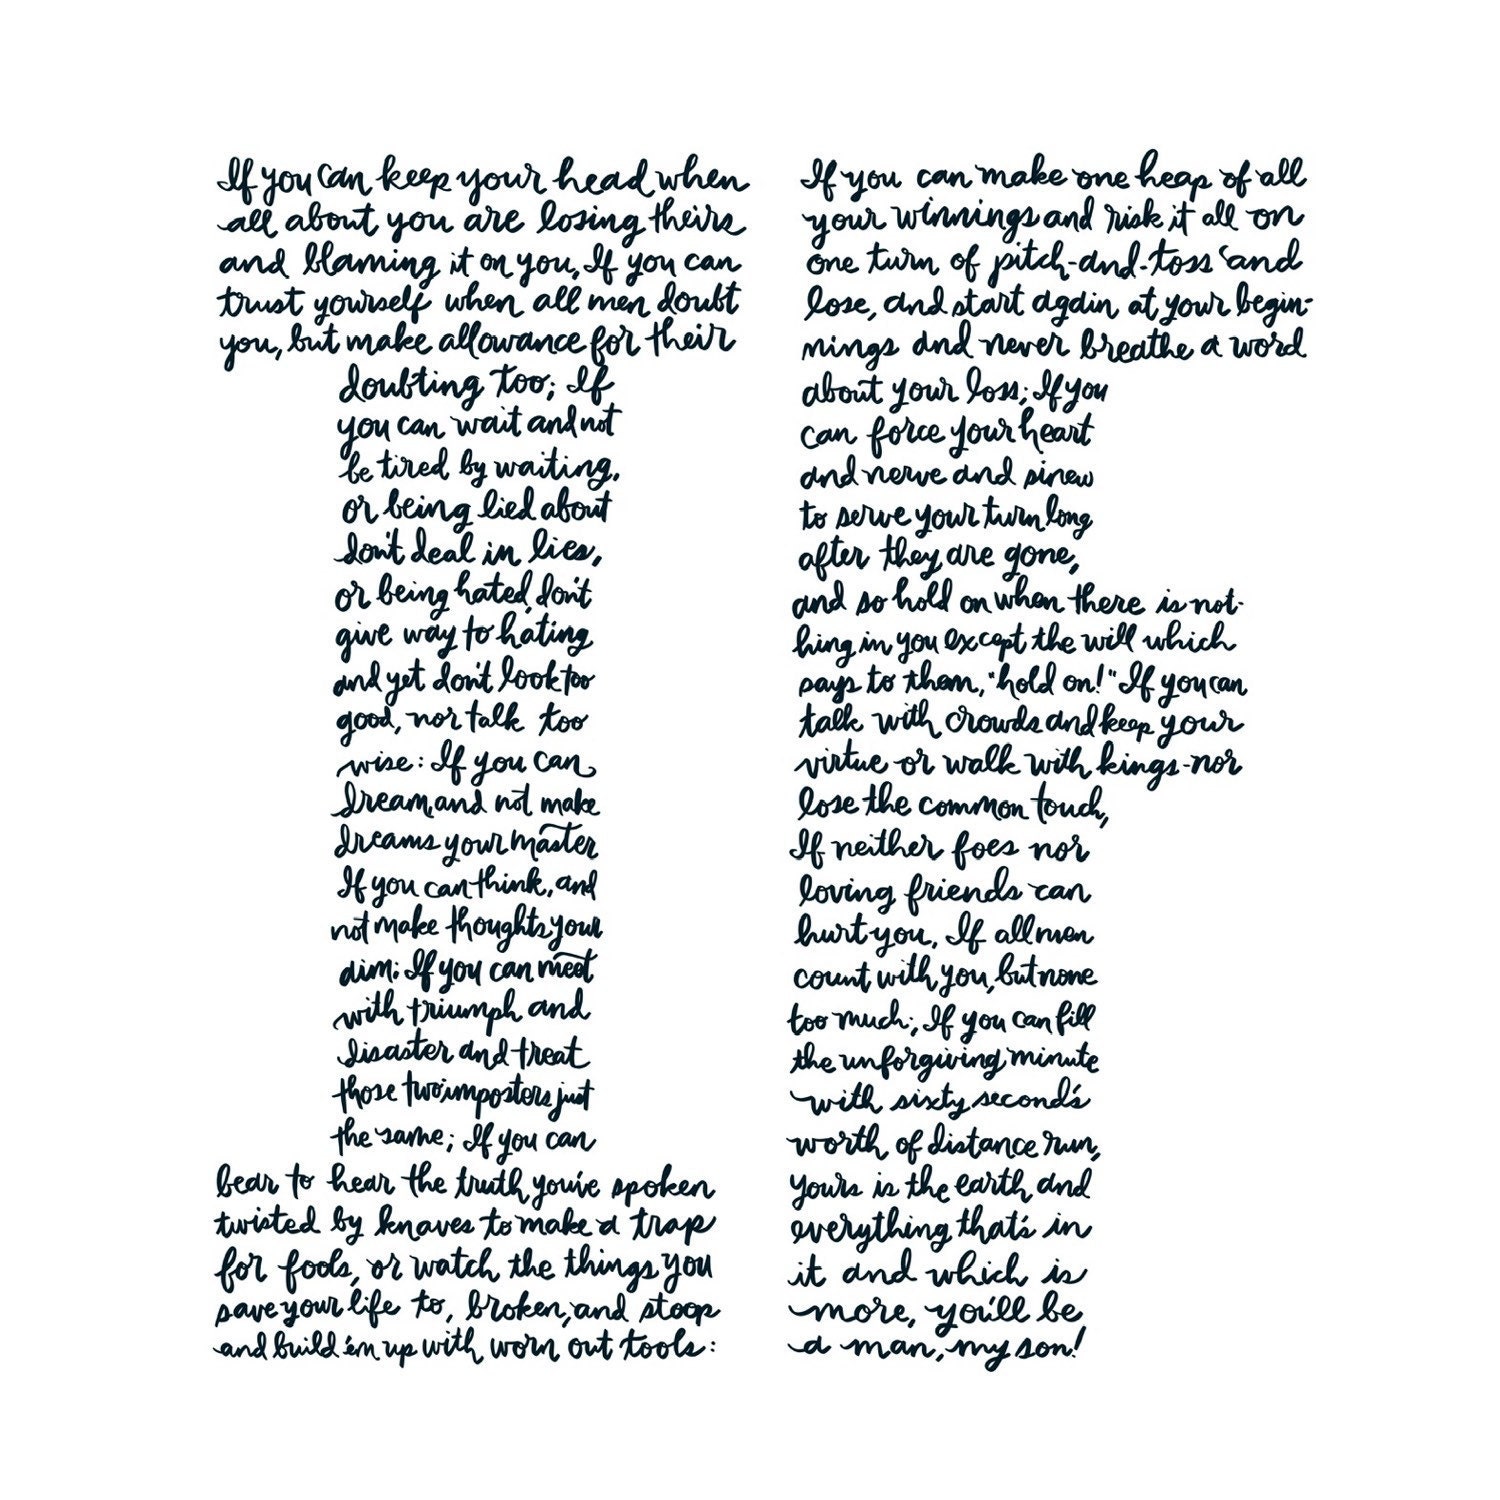 If you can keep your head when
all about you are losing theirs
and blaming it on you, If you can
trust yourself when all men doubt
you, but make allowance for their
doubting too; If
you can wait and not
be tired by waiting,
or being lied about
don't deal in lies,
or being hated, don't
give way to hating
and yet don't look too
good, nor talk too
wise: If you can
dream, and not make
dreams your master
If you can think, and
not make thoughts your
aim; If you can meet
with triumph and
disaster and treat
those two imposters just
the same; If you can
bear to hear the truth you've spoken
twisted by knaves to make a trap
for fools, or watch the things you
save your life to, broken, and stoop
and build 'em up with worn out tools:
If you can make one heap of all
your winnings and risk it all on
one turn of pitch-and-toss and
lose, and start again at your begin-
nings and never breathe a word
about your loss; If you
can force your heart
and nerve and sinew
to serve your turn long
after they are gone,
and so hold on when there is not-
hing in you except the will which
says to them, "hold on!" If you can
talk with crowds and keep your
virtue or walk with kings-nor
lose the common touch,
If neither foes nor
loving friends can
hurt you, If all men
count with you, but none
too much; If you can fill
the unforgiving minute
with sixty second's
worth of distance run,
yours is the earth and
everything that's in
it and which is
more, you'll be
a man, my son!